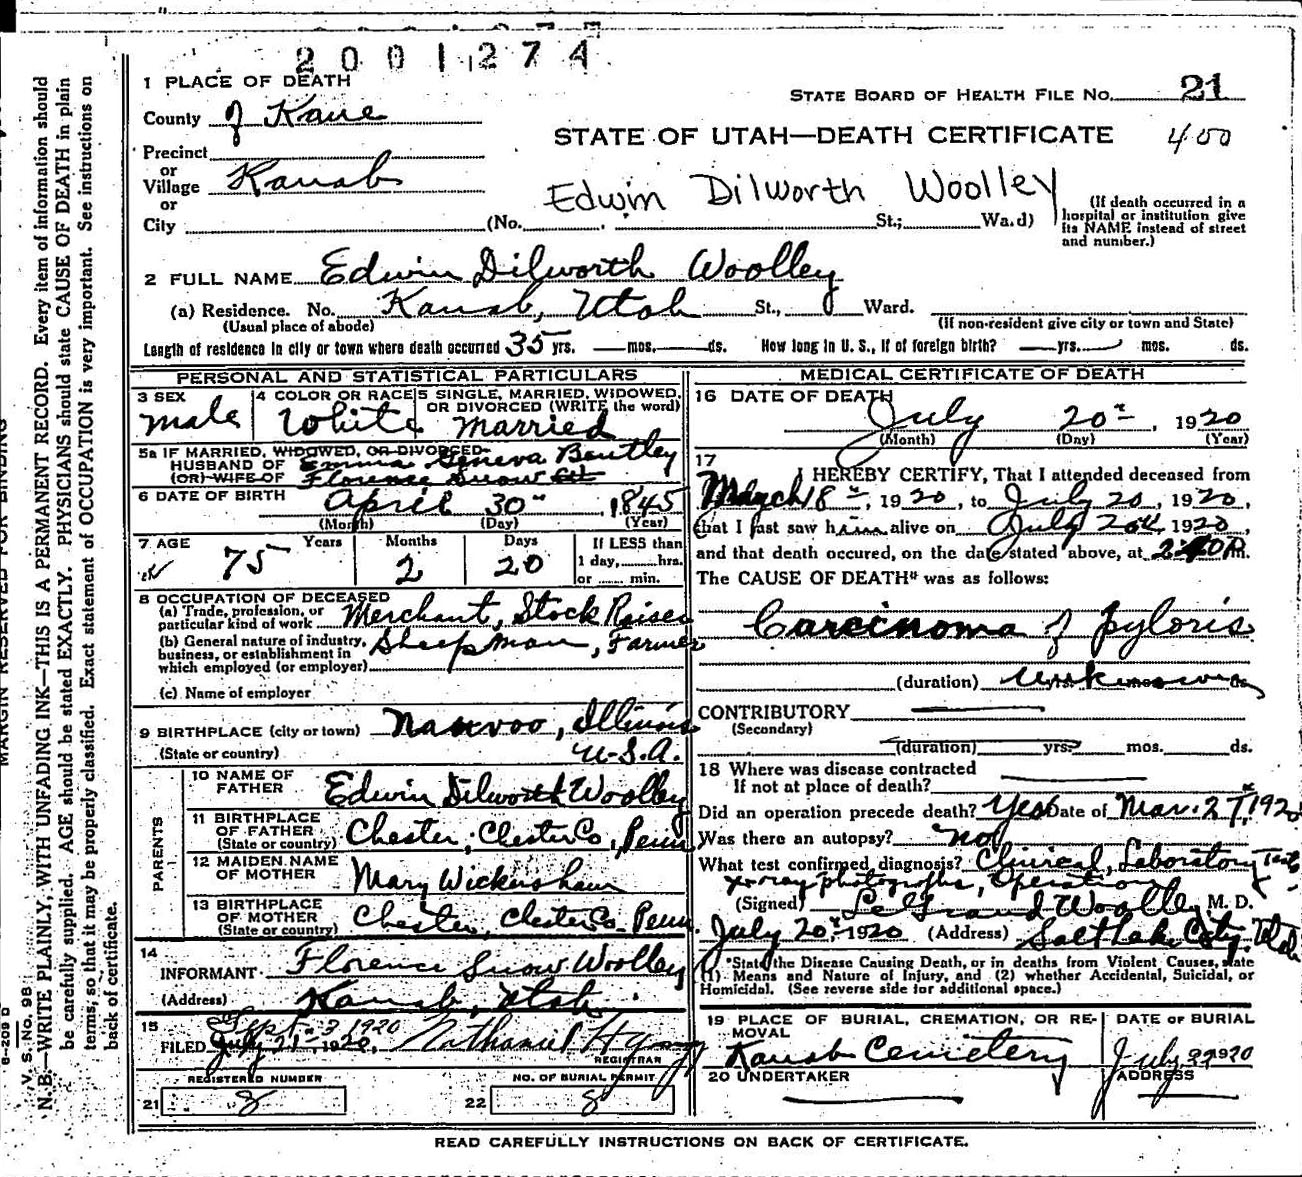 2001274
1 PLACE OF DEATH
STATE BOARD OF HEALTH FILE No. 21
County of Kane
STATE OF UTAH—DEATH CERTIFICATE 400
Precinct
or
Village Kanab
or
City (No. St.; Wa.d)
Edwin Dilworth Woolley
(If death occurred in a
hospital or institution give
its NAME instead of street
and number.)
2 FULL NAME Edwin Dilworth Woolley
(a) Residence. No. Kanab, Utah St., Ward.
(Usual place of abode) (If non-resident give city or town and State)
Length of residence in city or town where death occurred 35 yrs. mos. ds. How long in U. S., if of foreign birth? yrs. mos. ds.
PERSONAL AND STATISTICAL PARTICULARS
3 SEX male
4 COLOR OR RACE White
5 SINGLE, MARRIED, WIDOWED,
OR DIVORCED (WRITE the word)
Married
5a IF MARRIED, WIDOWED, OR DIVORCED
HUSBAND OF Emma Geneva Bentley
(OR) WIFE OF Florence Snow
6 DATE OF BIRTH April 30" 1845
(Month) (Day) (Year)
7 AGE Years Months Days If LESS than
75 2 20 1 day, hrs.
or min.
8 OCCUPATION OF DECEASED
(a) Trade, profession, or
particular kind of work Merchant, Stock Raiser
(b) General nature of industry,
business, or establishment in
which employed (or employer) Sheepman, Farmer
(c) Name of employer
9 BIRTHPLACE (city or town) Nauvoo, Illinois
(State or country) U.S.A.
PARENTS
10 NAME OF
FATHER Edwin Dilworth Woolley
11 BIRTHPLACE
OF FATHER
(State or country) Chester, Chester Co, Penn
12 MAIDEN NAME
OF MOTHER Mary Wickersham
13 BIRTHPLACE
OF MOTHER
(State or country) Chester, Chester Co. Penn.
14
INFORMANT Florence Snow Woolley
(Address) Kanab, Utah.
15 Sept. 3 1920
FILED July 21, 1920, Nathaniel H
REGISTRAR
REGISTERED NUMBER NO. OF BURIAL PERMIT
21 8 22 8
MEDICAL CERTIFICATE OF DEATH
16 DATE OF DEATH
July 20", 1920
(Month) (Day) (Year)
17
I HEREBY CERTIFY, That I attended deceased from
March 18", 1920, to July 20, 1920,
that I last saw him alive on July 20th, 1920,
and that death occured, on the date stated above, at 2:40 P.m.
The CAUSE OF DEATH* was as follows:
Carcinoma of pyloris
(duration) unknown ds.
CONTRIBUTORY
(Secondary)
(duration) yrs. mos. ds.
18 Where was disease contracted
If not at place of death?
Did an operation precede death? Yes Date of Mar. 27, 1920
Was there an autopsy? no
What test confirmed diagnosis? Clinical, Laboratory Tests
x-ray photographs, Operation
(Signed) LeGrand Woolley M. D.
July 20, 1920 (Address) Salt Lake City Utah
*State the Disease Causing Death, or in deaths from Violent Causes, state
(1) Means and Nature of Injury, and (2) whether Accidental, Suicidal, or
Homicidal. (See reverse side for additional space.)
19 PLACE OF BURIAL, CREMATION, OR RE-
MOVAL
Kanab Cemetery
DATE OF BURIAL
July 1920
20 UNDERTAKER ADDRESS
READ CAREFULLY INSTRUCTIONS ON BACK OF CERTIFICATE.
MARGIN RESERVED FOR BINDING
V. S. No. 9B
N. B.—WRITE PLAINLY, WITH UNFADING INK—THIS IS A PERMANENT RECORD. Every item of information should
be carefully supplied. AGE should be stated EXACTLY. PHYSICIANS should state CAUSE OF DEATH in plain
terms, so that it may be properly classified. Exact statement of OCCUPATION is very important. See instructions on
back of certificate.